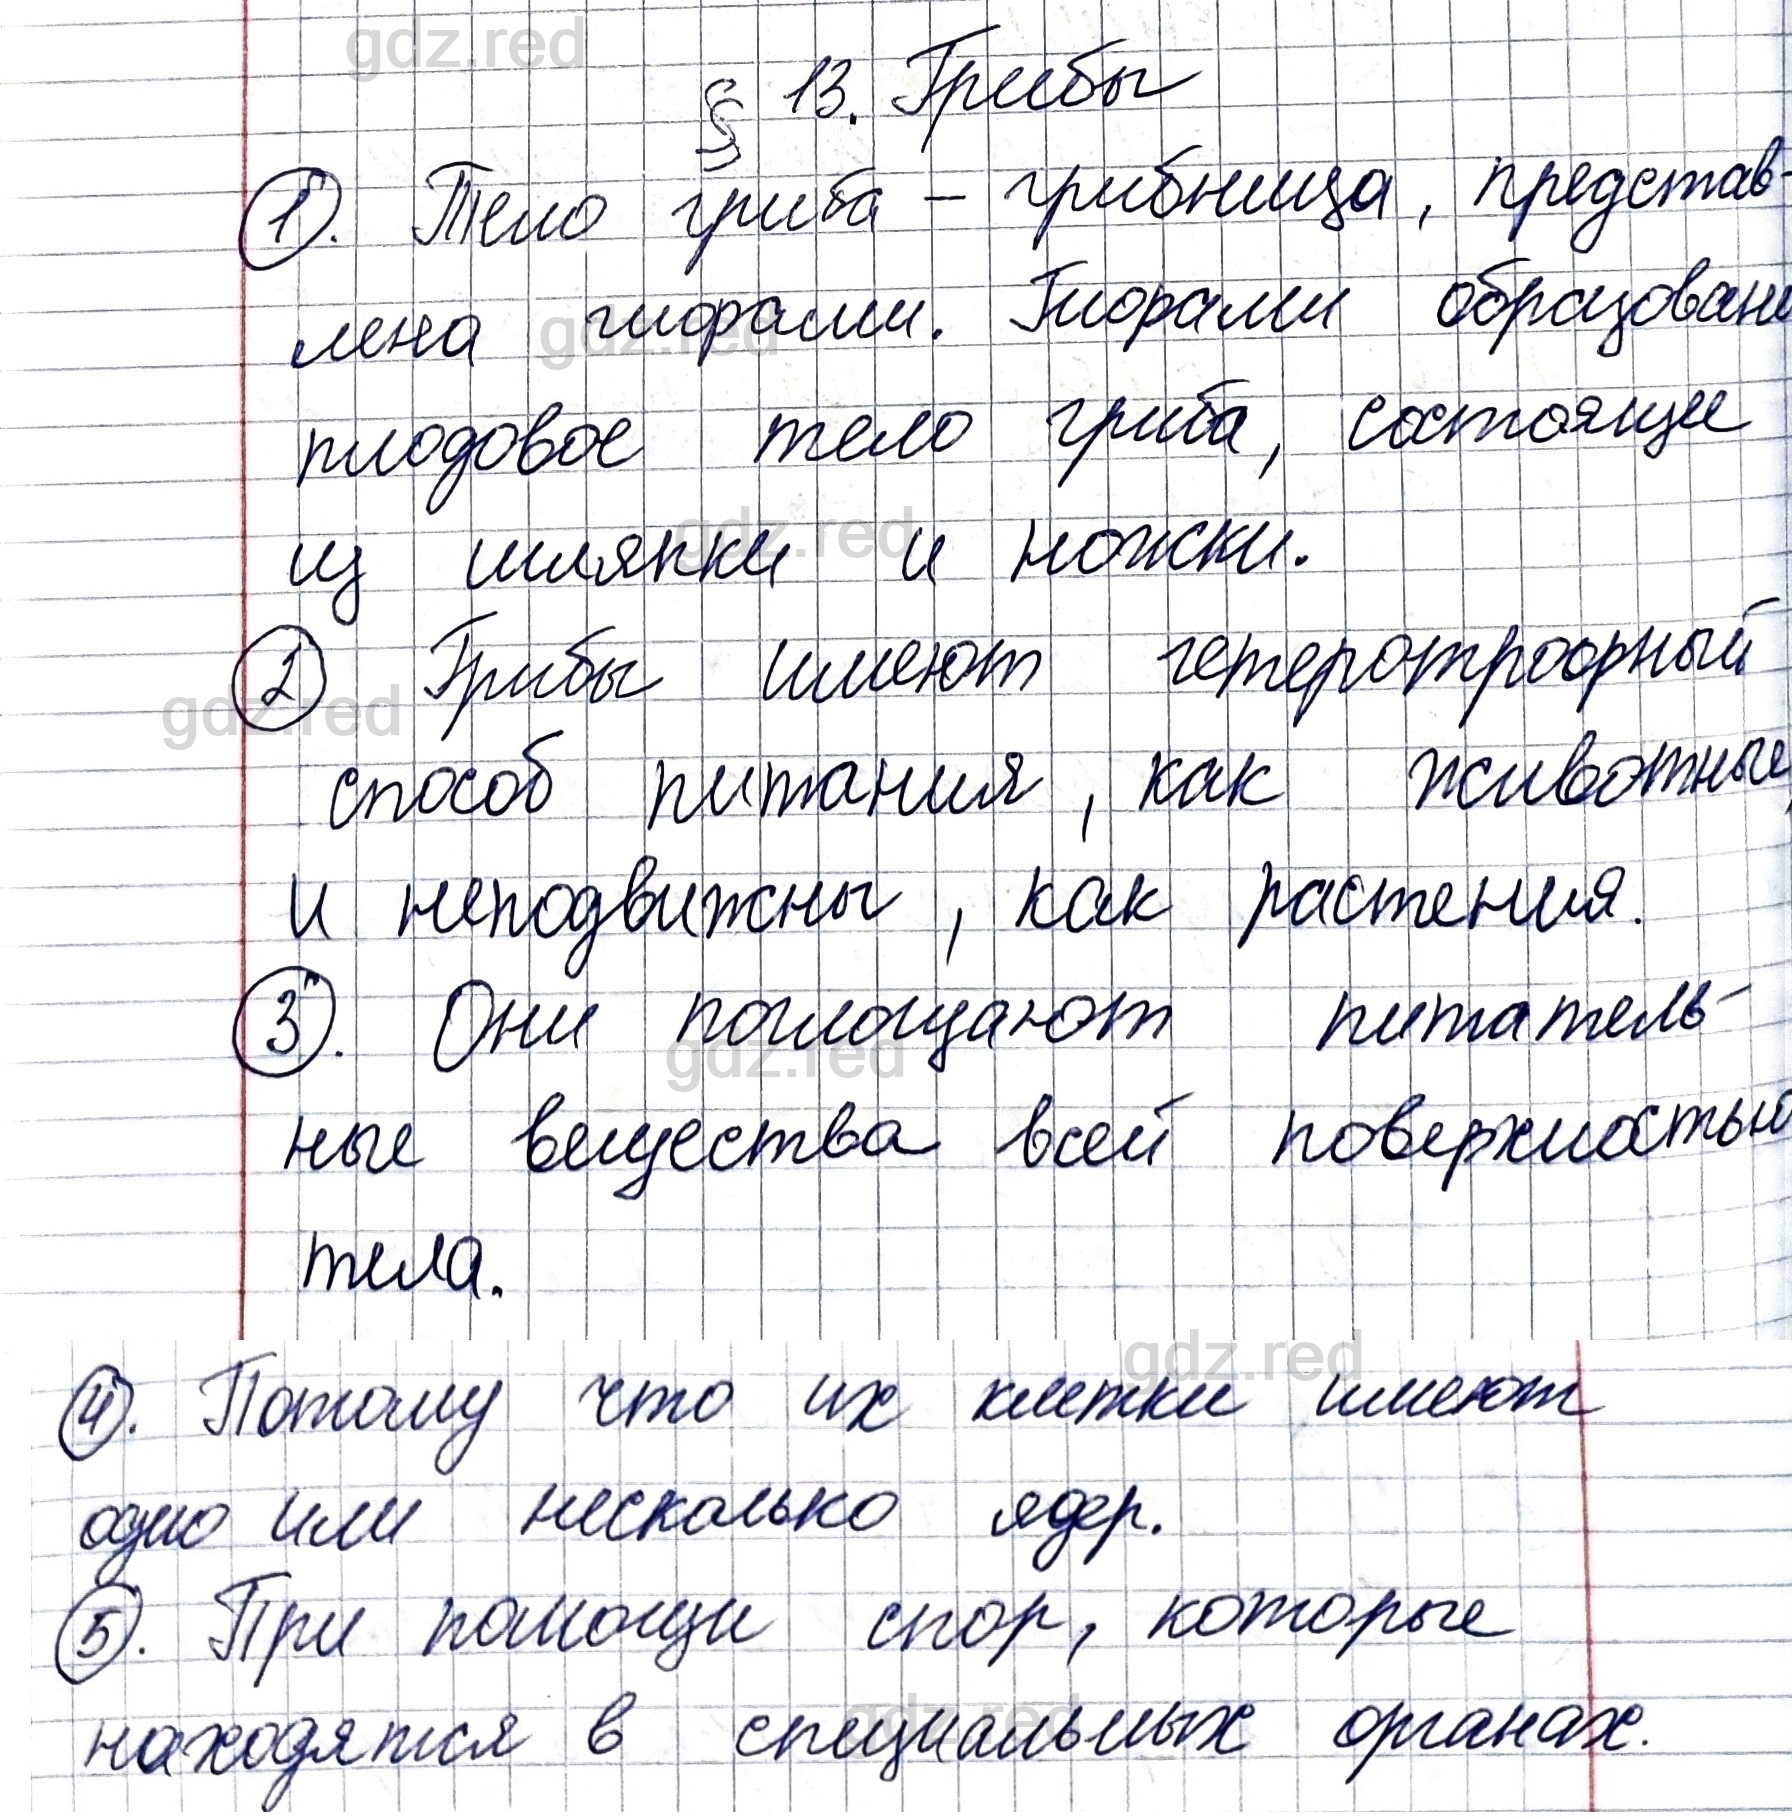 § 13. Грибы
1. Тело гриба – грибница, представ-
лена гифами. Гифами образован
плодовое тело гриба, состоящие
из шляпки и ножки.
2 Грибы имеют гетеротрофный
способ питания, как животные
и неподвижны, как растения.
3. Они поглощают питатель-
ные вещества всей поверхностью
тела.
4. Потому что их клетки имеют
одно или несколько ядер.
5. При помощи спор, которые
находятся в специальных органах.
gdz.red
gdz.red
gdz.red
gdz.red
gdz.red
gdz.red
gdz.red